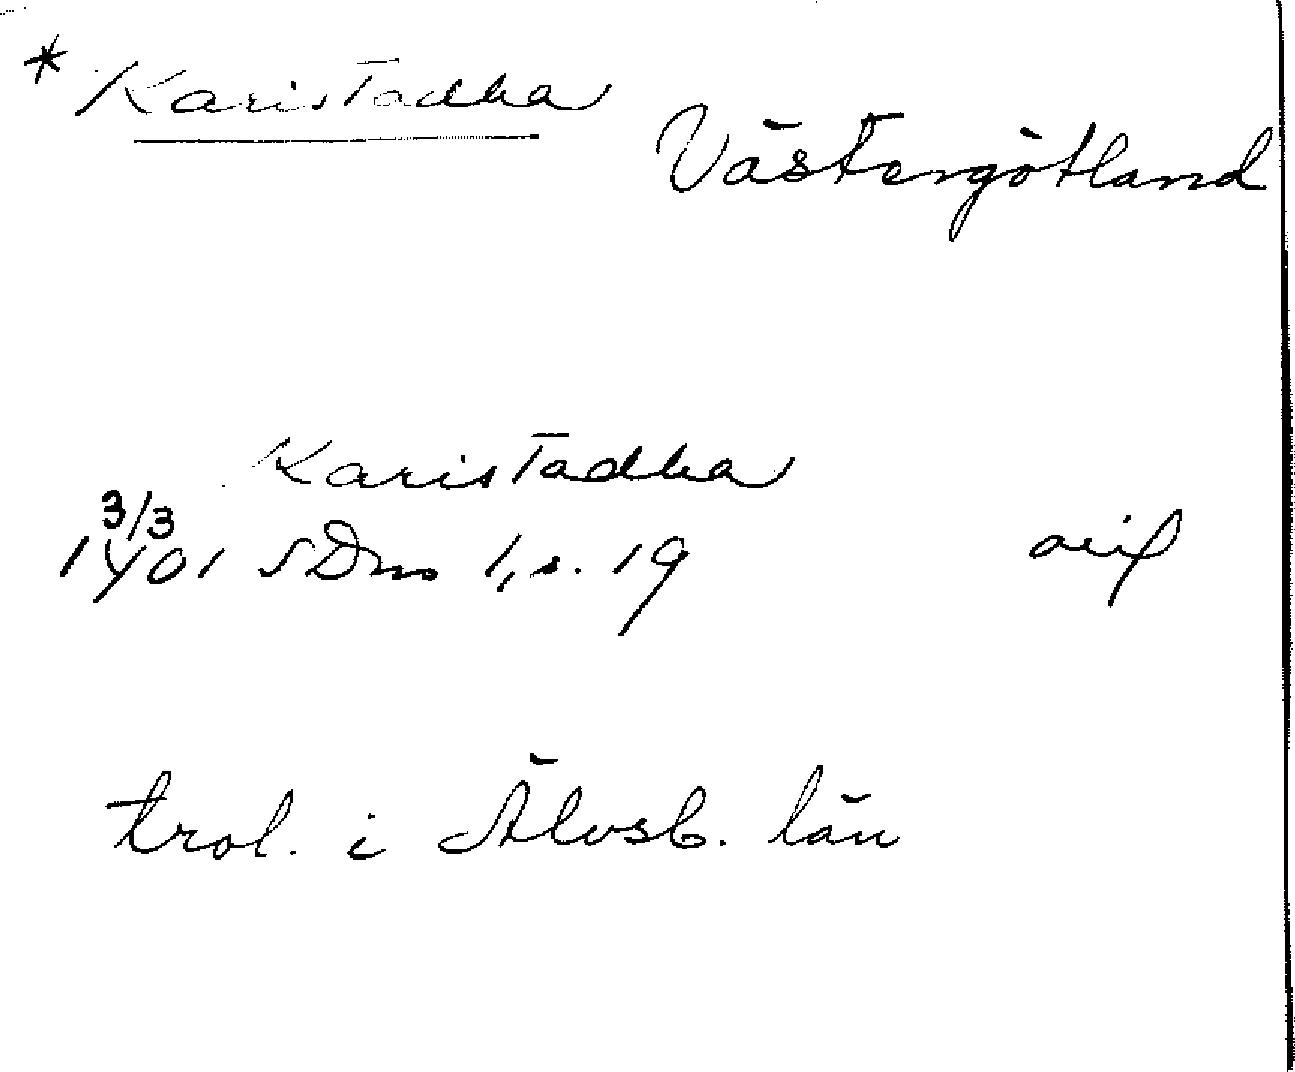 * Karistadha
Västergötland
Karistadha
3/3
1401 SDns 1, s. 19
trol. i Älvsb. län